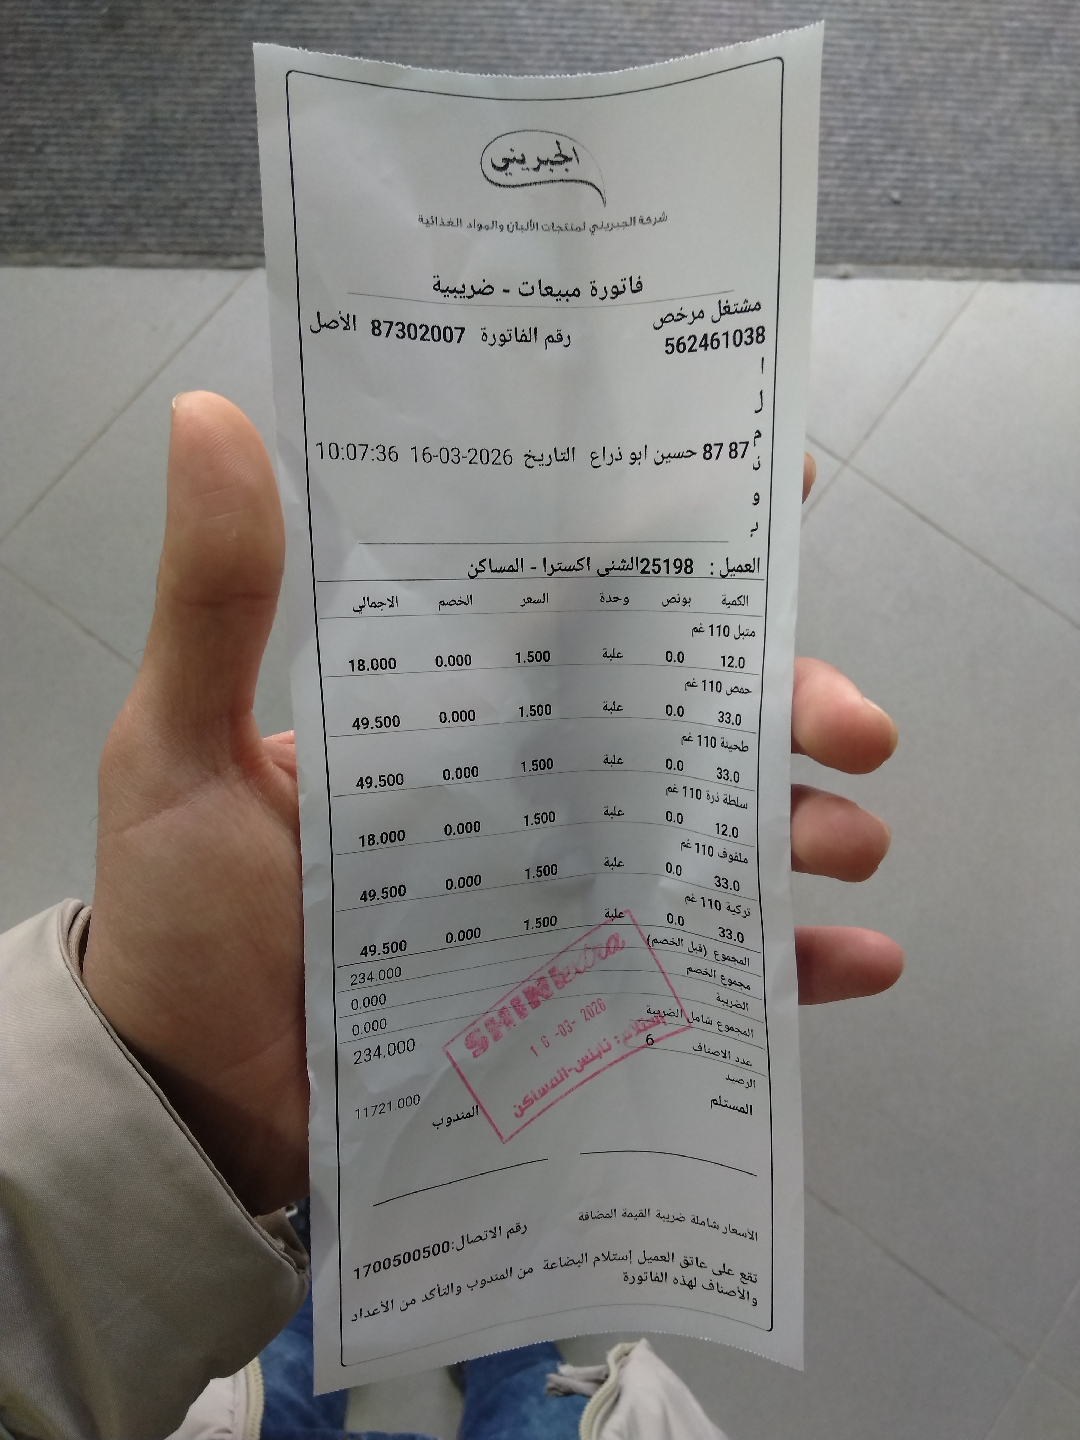 الجبريني
شركة الجبريني لمنتجات الألبان والمواد الغذائية
فاتورة مبيعات - ضريبية
مشتغل مرخص
562461038 رقم الفاتورة 87302007 الأصل
المندوب 87 87 حسين ابو ذراع التاريخ 16-03-2026 10:07:36
العميل : 25198الشني اكسترا - المساكن
الكمية بونص وحدة السعر الخصم الاجمالي
متبل 110 غم
12.0 0.0 علبة 1.500 0.000 18.000
حمص 110 غم
33.0 0.0 علبة 1.500 0.000 49.500
طحينة 110 غم
33.0 0.0 علبة 1.500 0.000 49.500
سلطة ذرة 110 غم
12.0 0.0 علبة 1.500 0.000 18.000
ملفوف 110 غم
33.0 0.0 علبة 1.500 0.000 49.500
تركية 110 غم
33.0 0.0 علبة 1.500 0.000 49.500
المجموع (قبل الخصم) 234.000
مجموع الخصم 0.000
الضريبة 0.000
المجموع شامل الضريبة 234.000
عدد الاصناف 6
الرصيد 11721.000
المستلم المندوب
SHINI extra
16-03-2026
إستلام: نابلس-المساكن
الأسعار شاملة ضريبة القيمة المضافة
رقم الاتصال:1700500500
تقع على عاتق العميل إستلام البضاعة من المندوب والتأكد من الأعداد
والأصناف لهذه الفاتورة